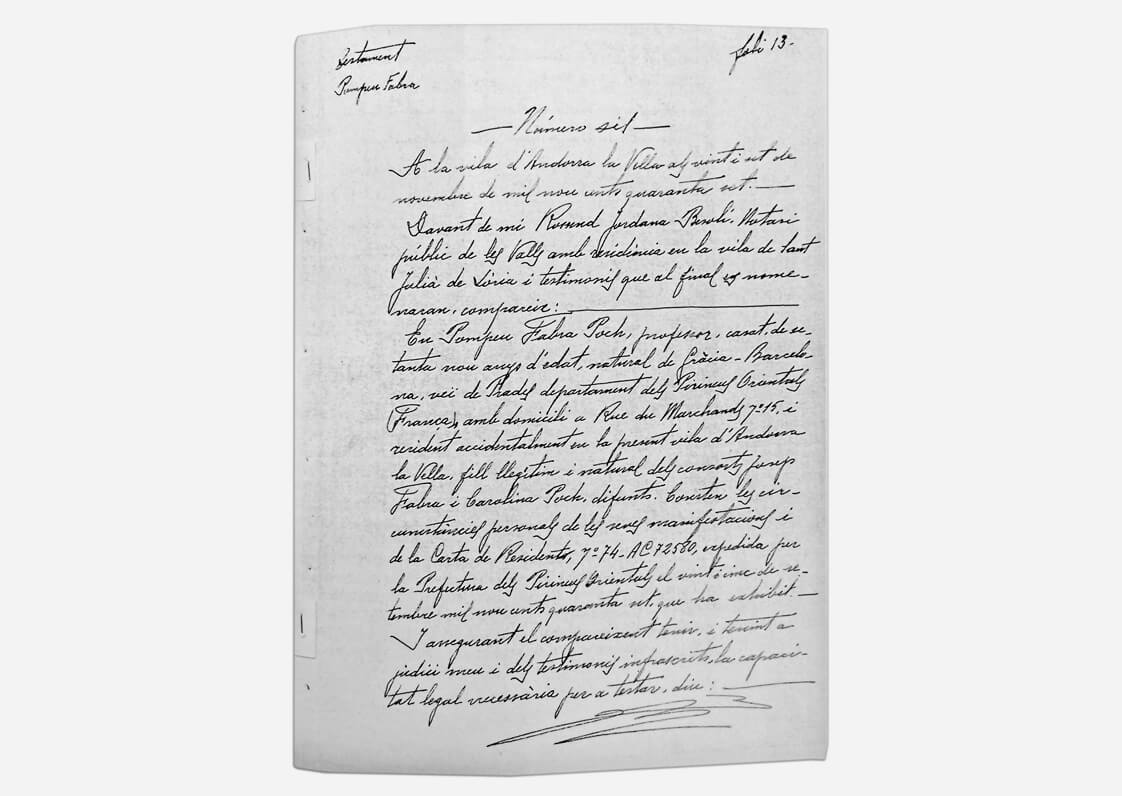 Testament
Pompeu Fabra
foli 13-
—Número sis—
A la vila d'Andorra la Vella als vint i set de
novembre de mil nou cents quaranta set.—
Davant de mi Rosend Jordana Besolí, Notari
públic de les Valls amb residència en la vila de Sant
Julià de Lòria i testimonis que al final es nome-
naran, compareix:
En Pompeu Fabra Poch, professor, casat, de se-
tanta nou anys d'edat, natural de Gràcia - Barcelo-
na, veí de Prades departament dels Pirineus Orientals
(França), amb domicili a Rue du Marchands, nº 15, i
resident accidentalment en la present vila d'Andorra
la Vella, fill llegítim i natural dels consorts Josep
Fabra i Carolina Poch, difunts. Consten les cir-
cumstàncies personals de les seves manifestacions i
de la Carta de Residents, nº 74-AC72580, expedida per
la Prefectura dels Pirineus Orientals el vint i cinc de se-
tembre mil nou cents quaranta set, que ha exhibit.—
I assegurant el compareixent tenir, i tenint a
judici meu i dels testimonis infrascrits, la capaci-
tat legal necessària per a testar, diu:—